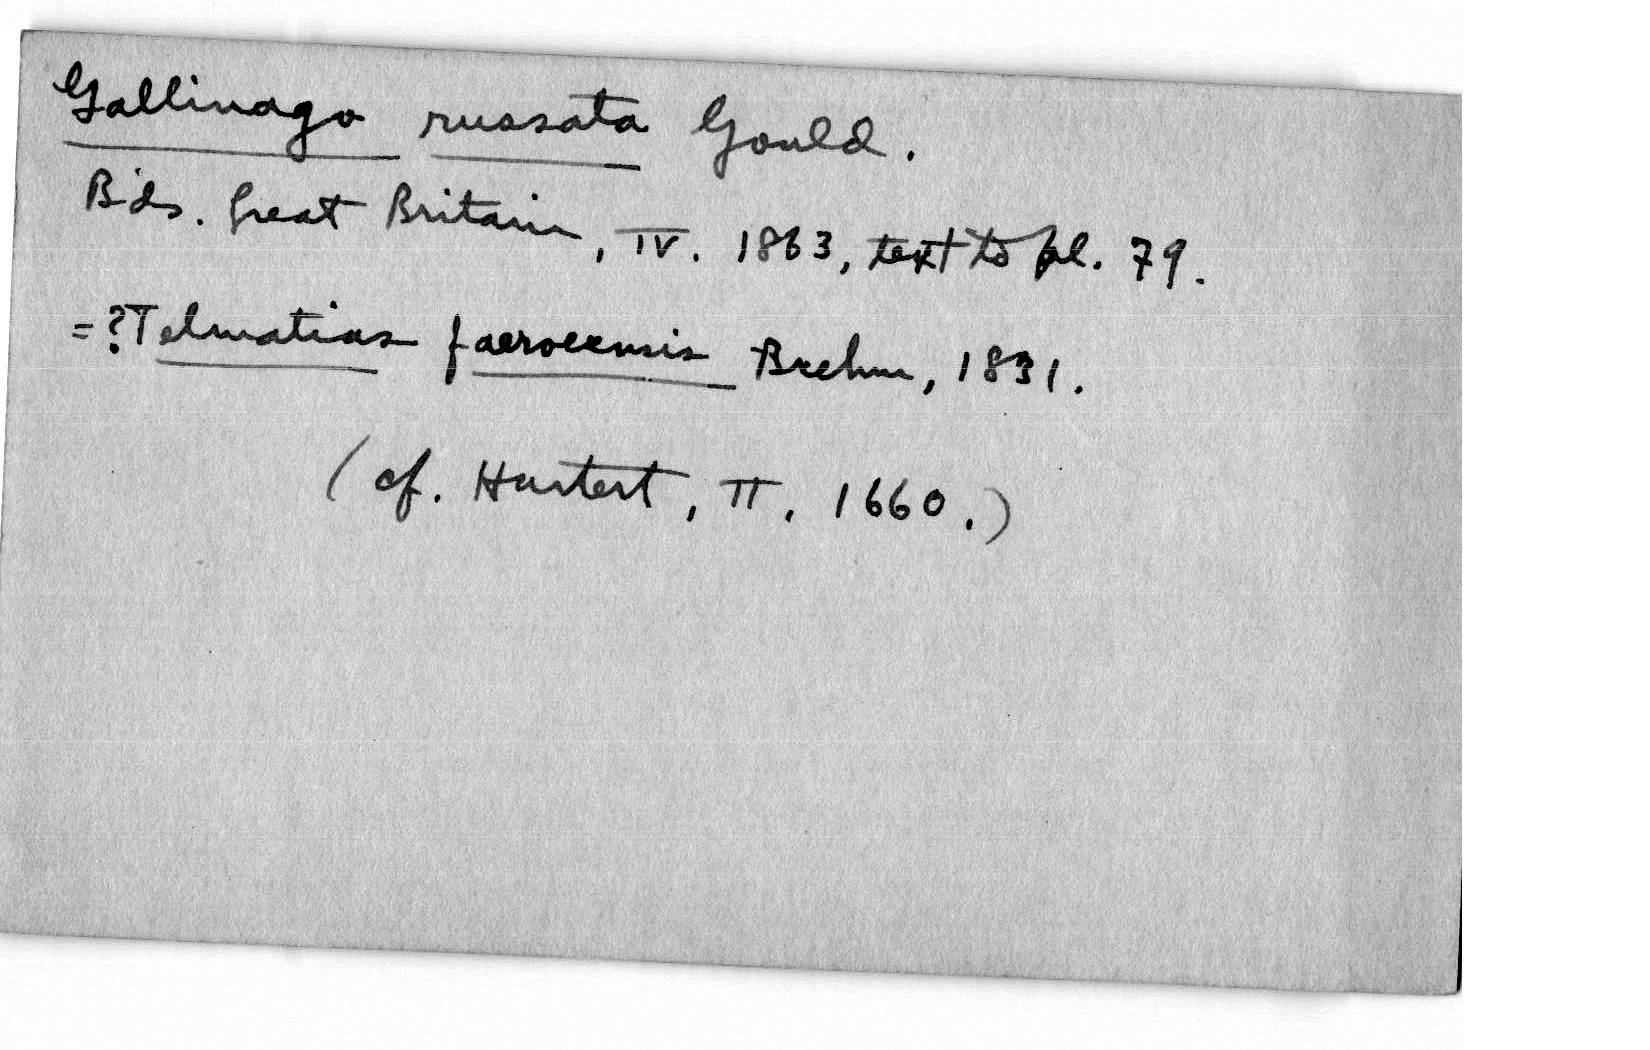 Gallinago russata Gould.
B'ds. Great Britain, IV. 1863, text to pl. 79.
=?Telmatias faeroeensis Brehm, 1831.
(cf. Hartert, II. 1660.)